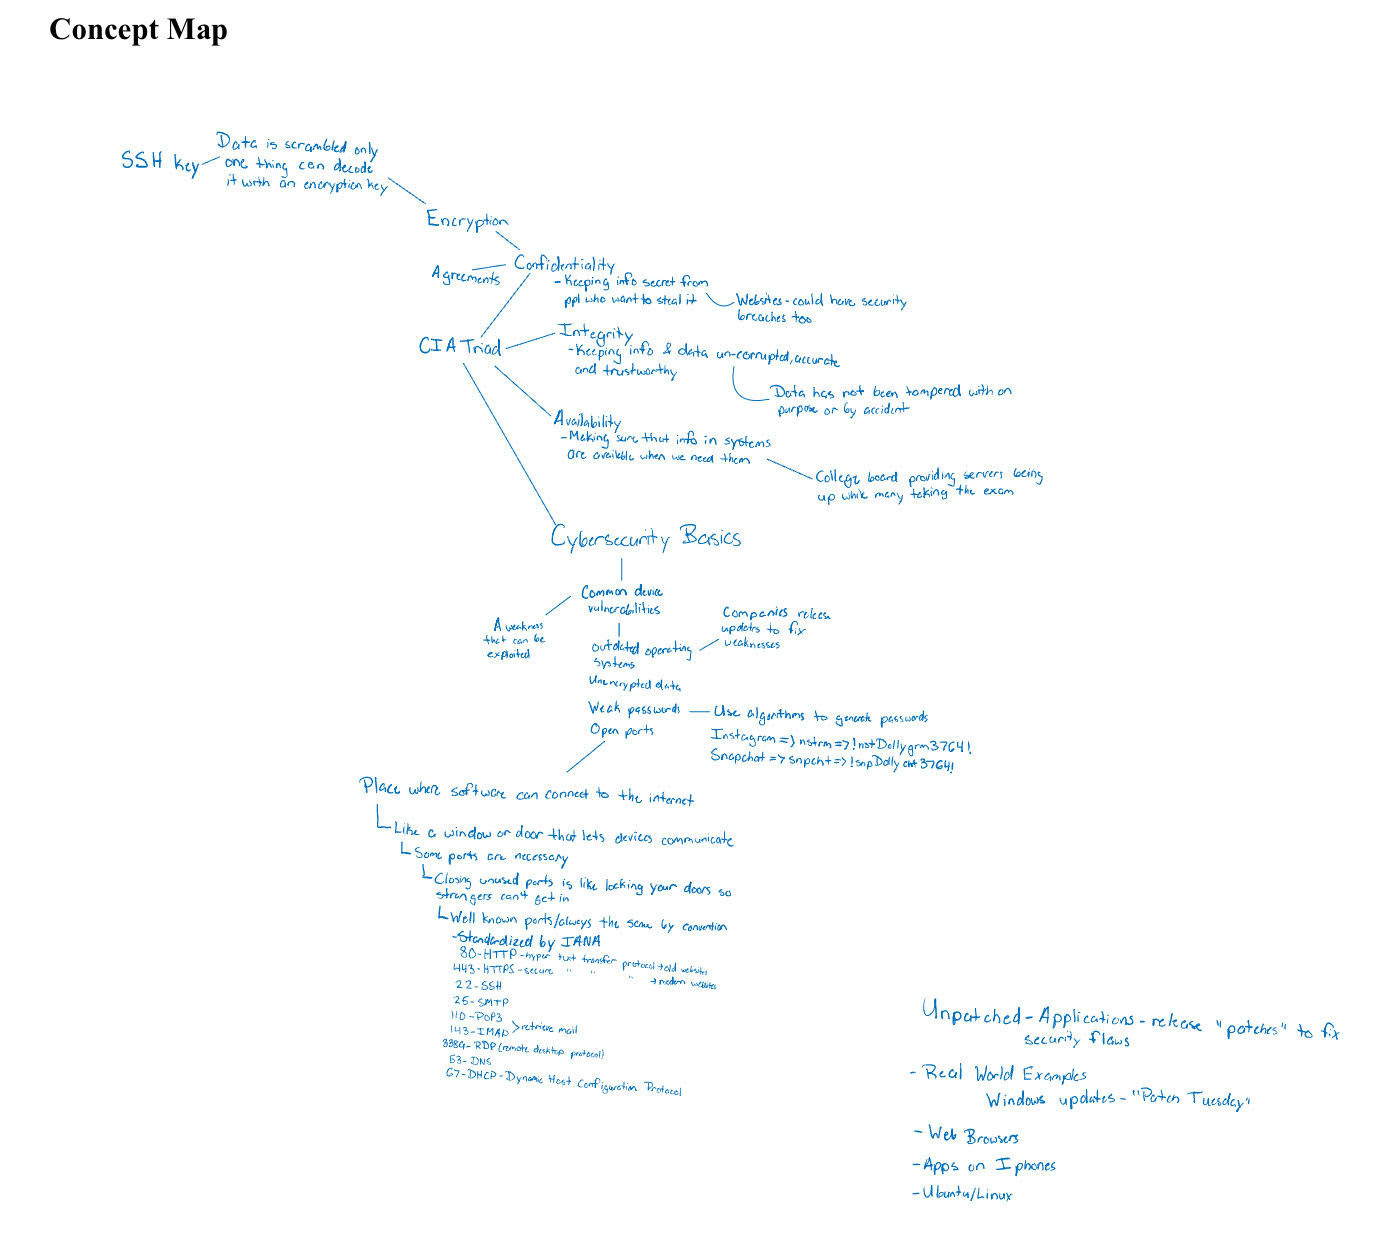 Concept Map
SSH key
Data is scrambled only
one thing can decode
it with an encryption key
Encryption
Agreements
Confidentiality
- Keeping info secret from
ppl who want to steal it
Websites - could have security
breaches too
CIA Triad
Integrity
- Keeping info & data un-corrupted, accurate
and trustworthy
Data has not been tampered with on
purpose or by accident
Availability
- Making sure that info in systems
are available when we need them
College board providing servers being
up while many taking the exam
Cybersecurity Basics
Common device
vulnerabilities
A weakness
that can be
exploited
Outdated operating
systems
Companies release
updates to fix
weaknesses
Unencrypted data
Weak passwords
Use algorithms to generate passwords
Instagram => nstrm => !nstDollygrm3764!
Snapchat => snpcht => !snpDollycht3764!
Open ports
Place where software can connect to the internet
Like a window or door that lets devices communicate
Some ports are necessary
Closing unused ports is like locking your doors so
strangers can't get in
Well known ports/always the same by convention
- Standardized by IANA
80 - HTTP - hyper text transfer protocol → old websites
443 - HTTPS - secure " " " → modern websites
22 - SSH
25 - SMTP
110 - POP3
143 - IMAP > retrieve mail
3389 - RDP (remote desktop protocol)
53 - DNS
67 - DHCP - Dynamic Host Configuration Protocol
Unpatched - Applications - release "patches" to fix
security flaws
- Real World Examples
Windows updates - "Patch Tuesday"
- Web Browsers
- Apps on Iphones
- Ubuntu/Linux